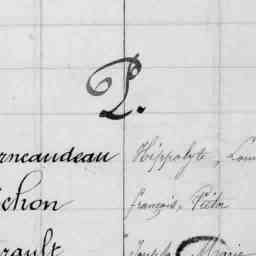 P.
rneaudeau Hippolyte, Loui
ichon françois, Piérre
rault Joseph, Marie